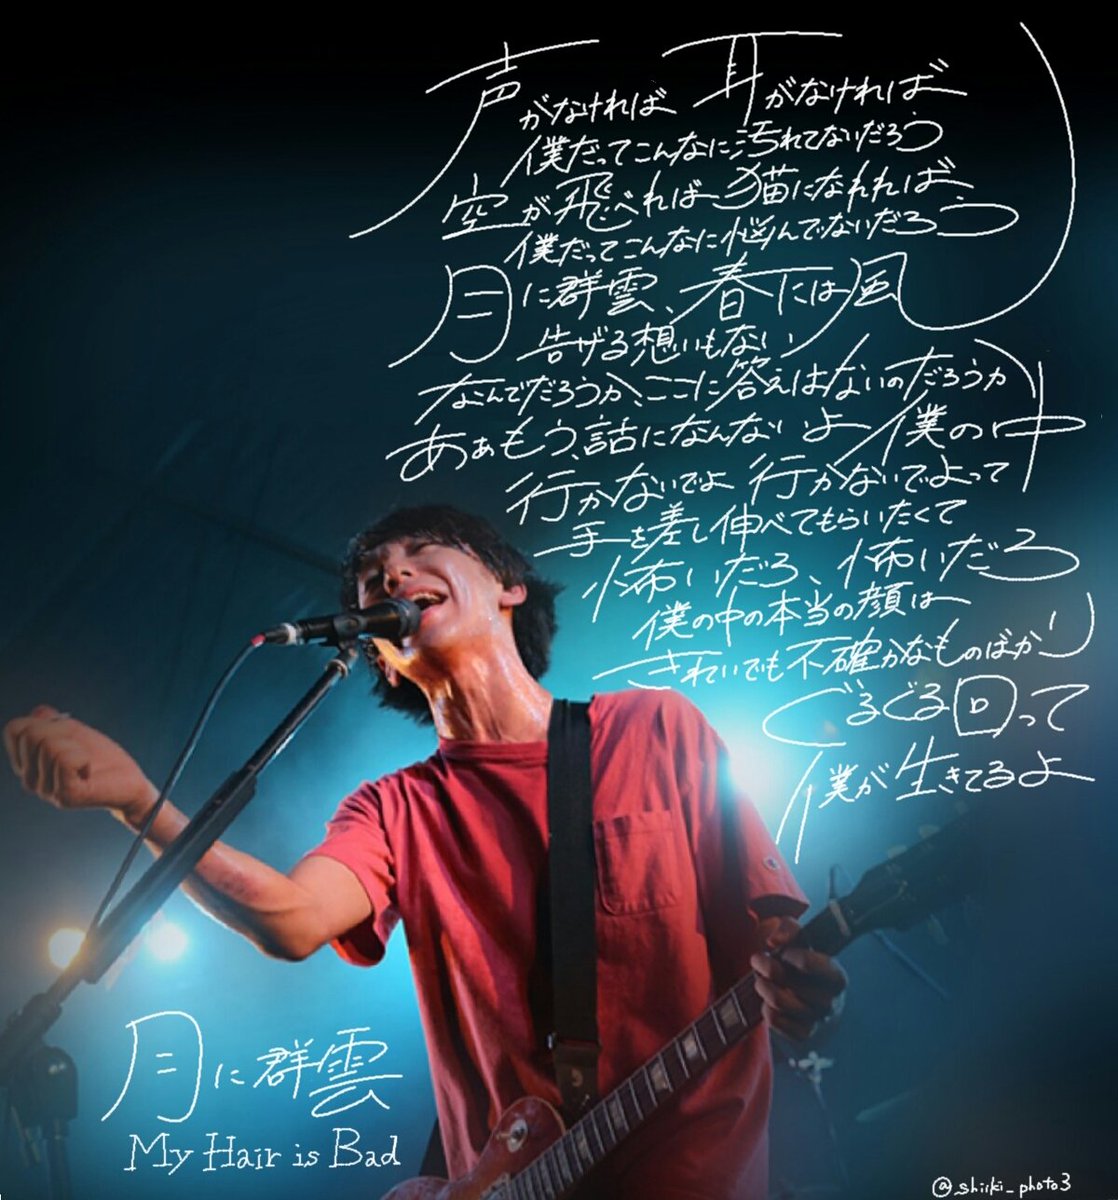 声がなければ 耳がなければ
僕だってこんなに汚れてないだろう
空が飛べれば 猫になれれば
僕だってこんなに悩んでないだろう
月に群雲、春には風
告げる想いもない
なんでだろうか、ここに答えはないのだろうか
あぁもう、話になんないよ 僕の中
行かないでよ 行かないでよって
手を差し伸べてもらいたくて
怖いだろ、怖いだろ
僕の中の本当の顔は
きれいでも不確かなものばかり
ぐるぐる回って
僕が生きてるよ
月に群雲
My Hair is Bad
@shiiki_photo3